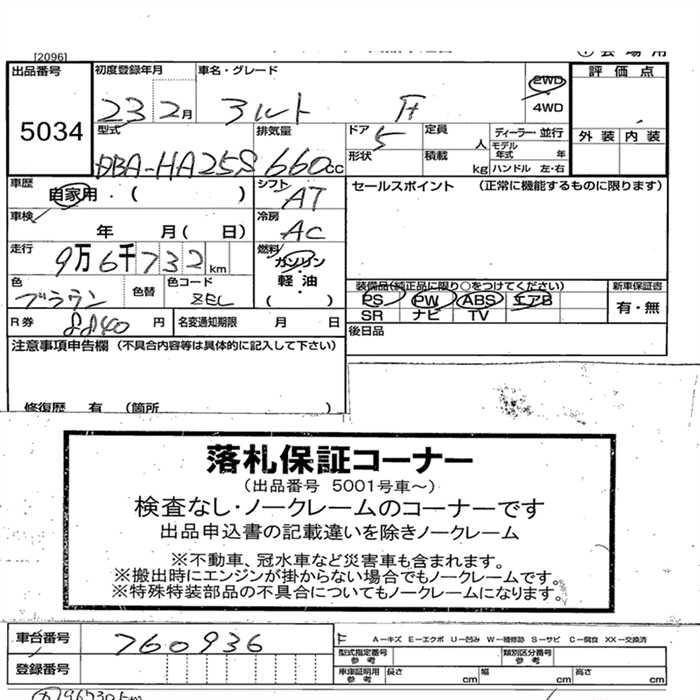 [2096]
出品番号 5034
初度登録年月 23 2月
車名・グレード アルト F
2WD
4WD
評価点
外装 内装
型式 DBA-HA25S
排気量 660cc
ドア 5
形状
定員 人
積載 kg
ディーラー・並行
モデル年式 年
ハンドル 左・右
車歴 自家用・( )
シフト AT
セールスポイント (正常に機能するものに限ります)
車検 年 月( 日)
冷房 AC
走行 9万6千732km
燃料 ガソリン
軽油
( )
色 ブラウン
色替
色コード
装備品(純正品に限り○をつけてください)
PS PW ABS エアB
SR ナビ TV
新車保証書
有・無
R券 8840円
名変通知期限 月 日
後日品
注意事項申告欄 (不具合内容等は具体的に記入して下さい)
修復歴 有 (箇所 )
落札保証コーナー
(出品番号 5001号車~)
検査なし・ノークレームのコーナーです
出品申込書の記載違いを除きノークレーム
※不動車、冠水車など災害車も含まれます。
※搬出時にエンジンが掛からない場合でもノークレームです。
※特殊特装部品の不具合についてもノークレームになります。
車台番号 760936
A-キズ E-エクボ U-凹み W-補修跡 S-サビ C-腐食 XX-交換済
登録番号
型式指定番号 参考
類別区分番号 参考
車庫証明用 参考 長さ cm 幅 cm 高さ cm
96730km